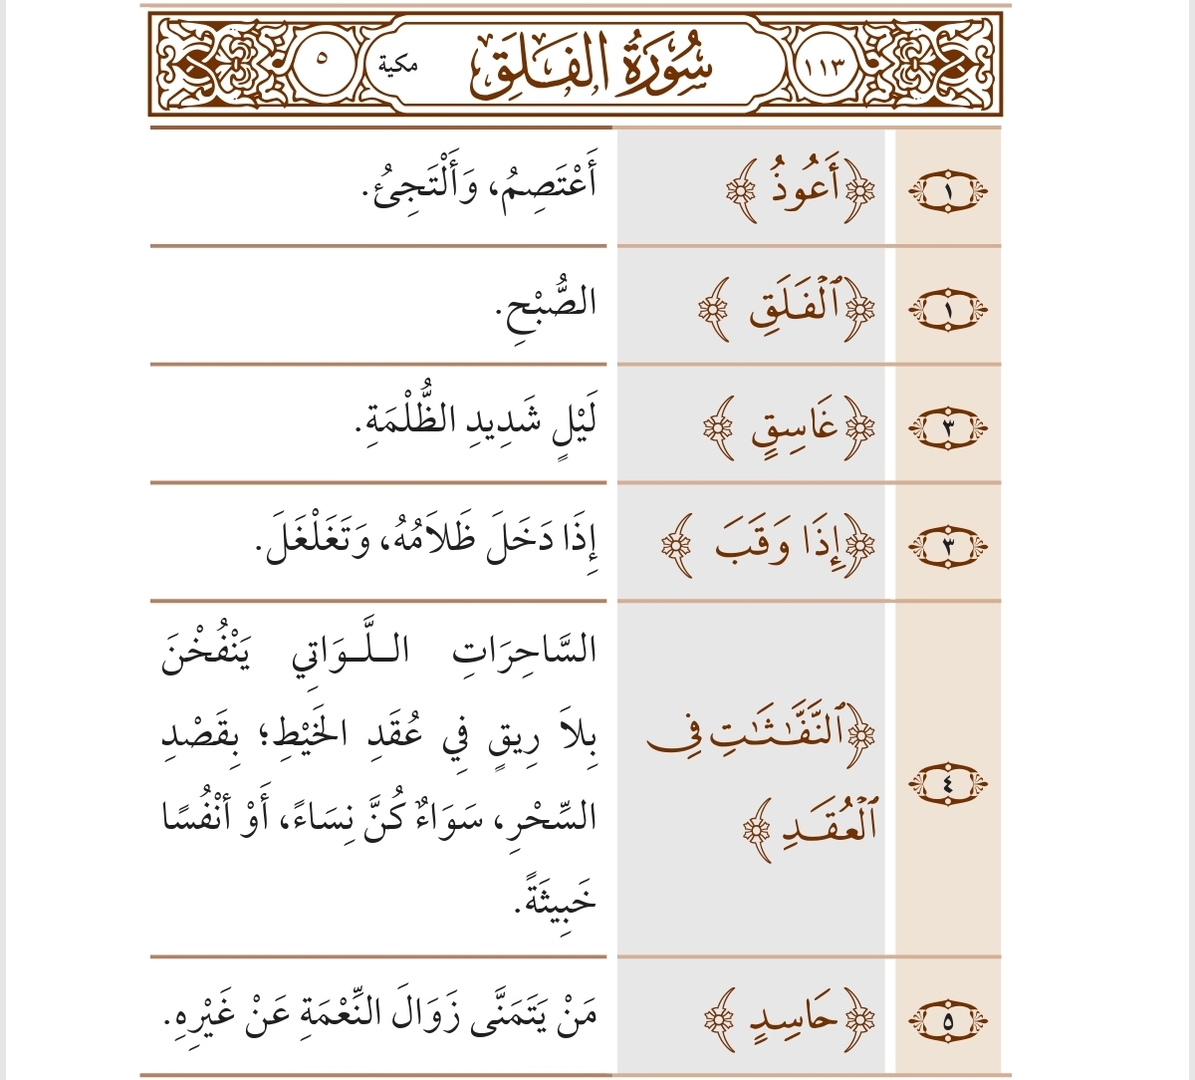 ١١٣ سُورَةُ الفَلَقِ مكية ٥
١ ﴿أَعُوذُ﴾ أَعْتَصِمُ، وَأَلْتَجِئُ.
١ ﴿ٱلْفَلَقِ﴾ الصُّبْحِ.
٣ ﴿غَاسِقٍ﴾ لَيْلٍ شَدِيدِ الظُّلْمَةِ.
٣ ﴿إِذَا وَقَبَ﴾ إِذَا دَخَلَ ظَلاَمُهُ، وَتَغَلْغَلَ.
٤ ﴿ٱلنَّفَّـٰثَـٰتِ فِى
ٱلْعُقَدِ﴾
السَّاحِرَاتِ الـلَّـوَاتِي يَنْفُخْنَ
بِلاَ رِيقٍ فِي عُقَدِ الخَيْطِ؛ بِقَصْدِ
السِّحْرِ، سَوَاءٌ كُنَّ نِسَاءً، أَوْ أنْفُسًا
خَبِيثَةً.
٥ ﴿حَاسِدٍ﴾ مَنْ يَتَمَنَّى زَوَالَ النِّعْمَةِ عَنْ غَيْرِهِ.